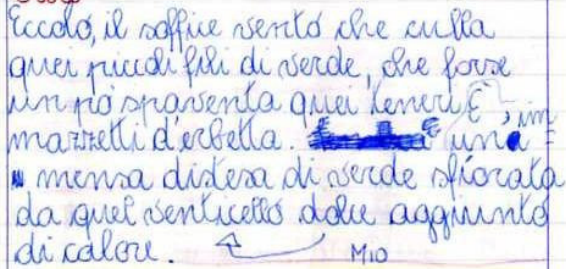 Eccolo, il soffice vento che culla
quei piccoli fili di verde, che forse
un pò spaventa quei teneri
mazzetti d'erbetta. È una im=
mensa distesa di verde sfiorata
da quel venticello dolce aggiunto
di calore. MIO